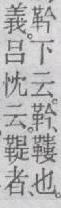 靲下云。靲、鞻也。
義。呂忱云。鞮者、